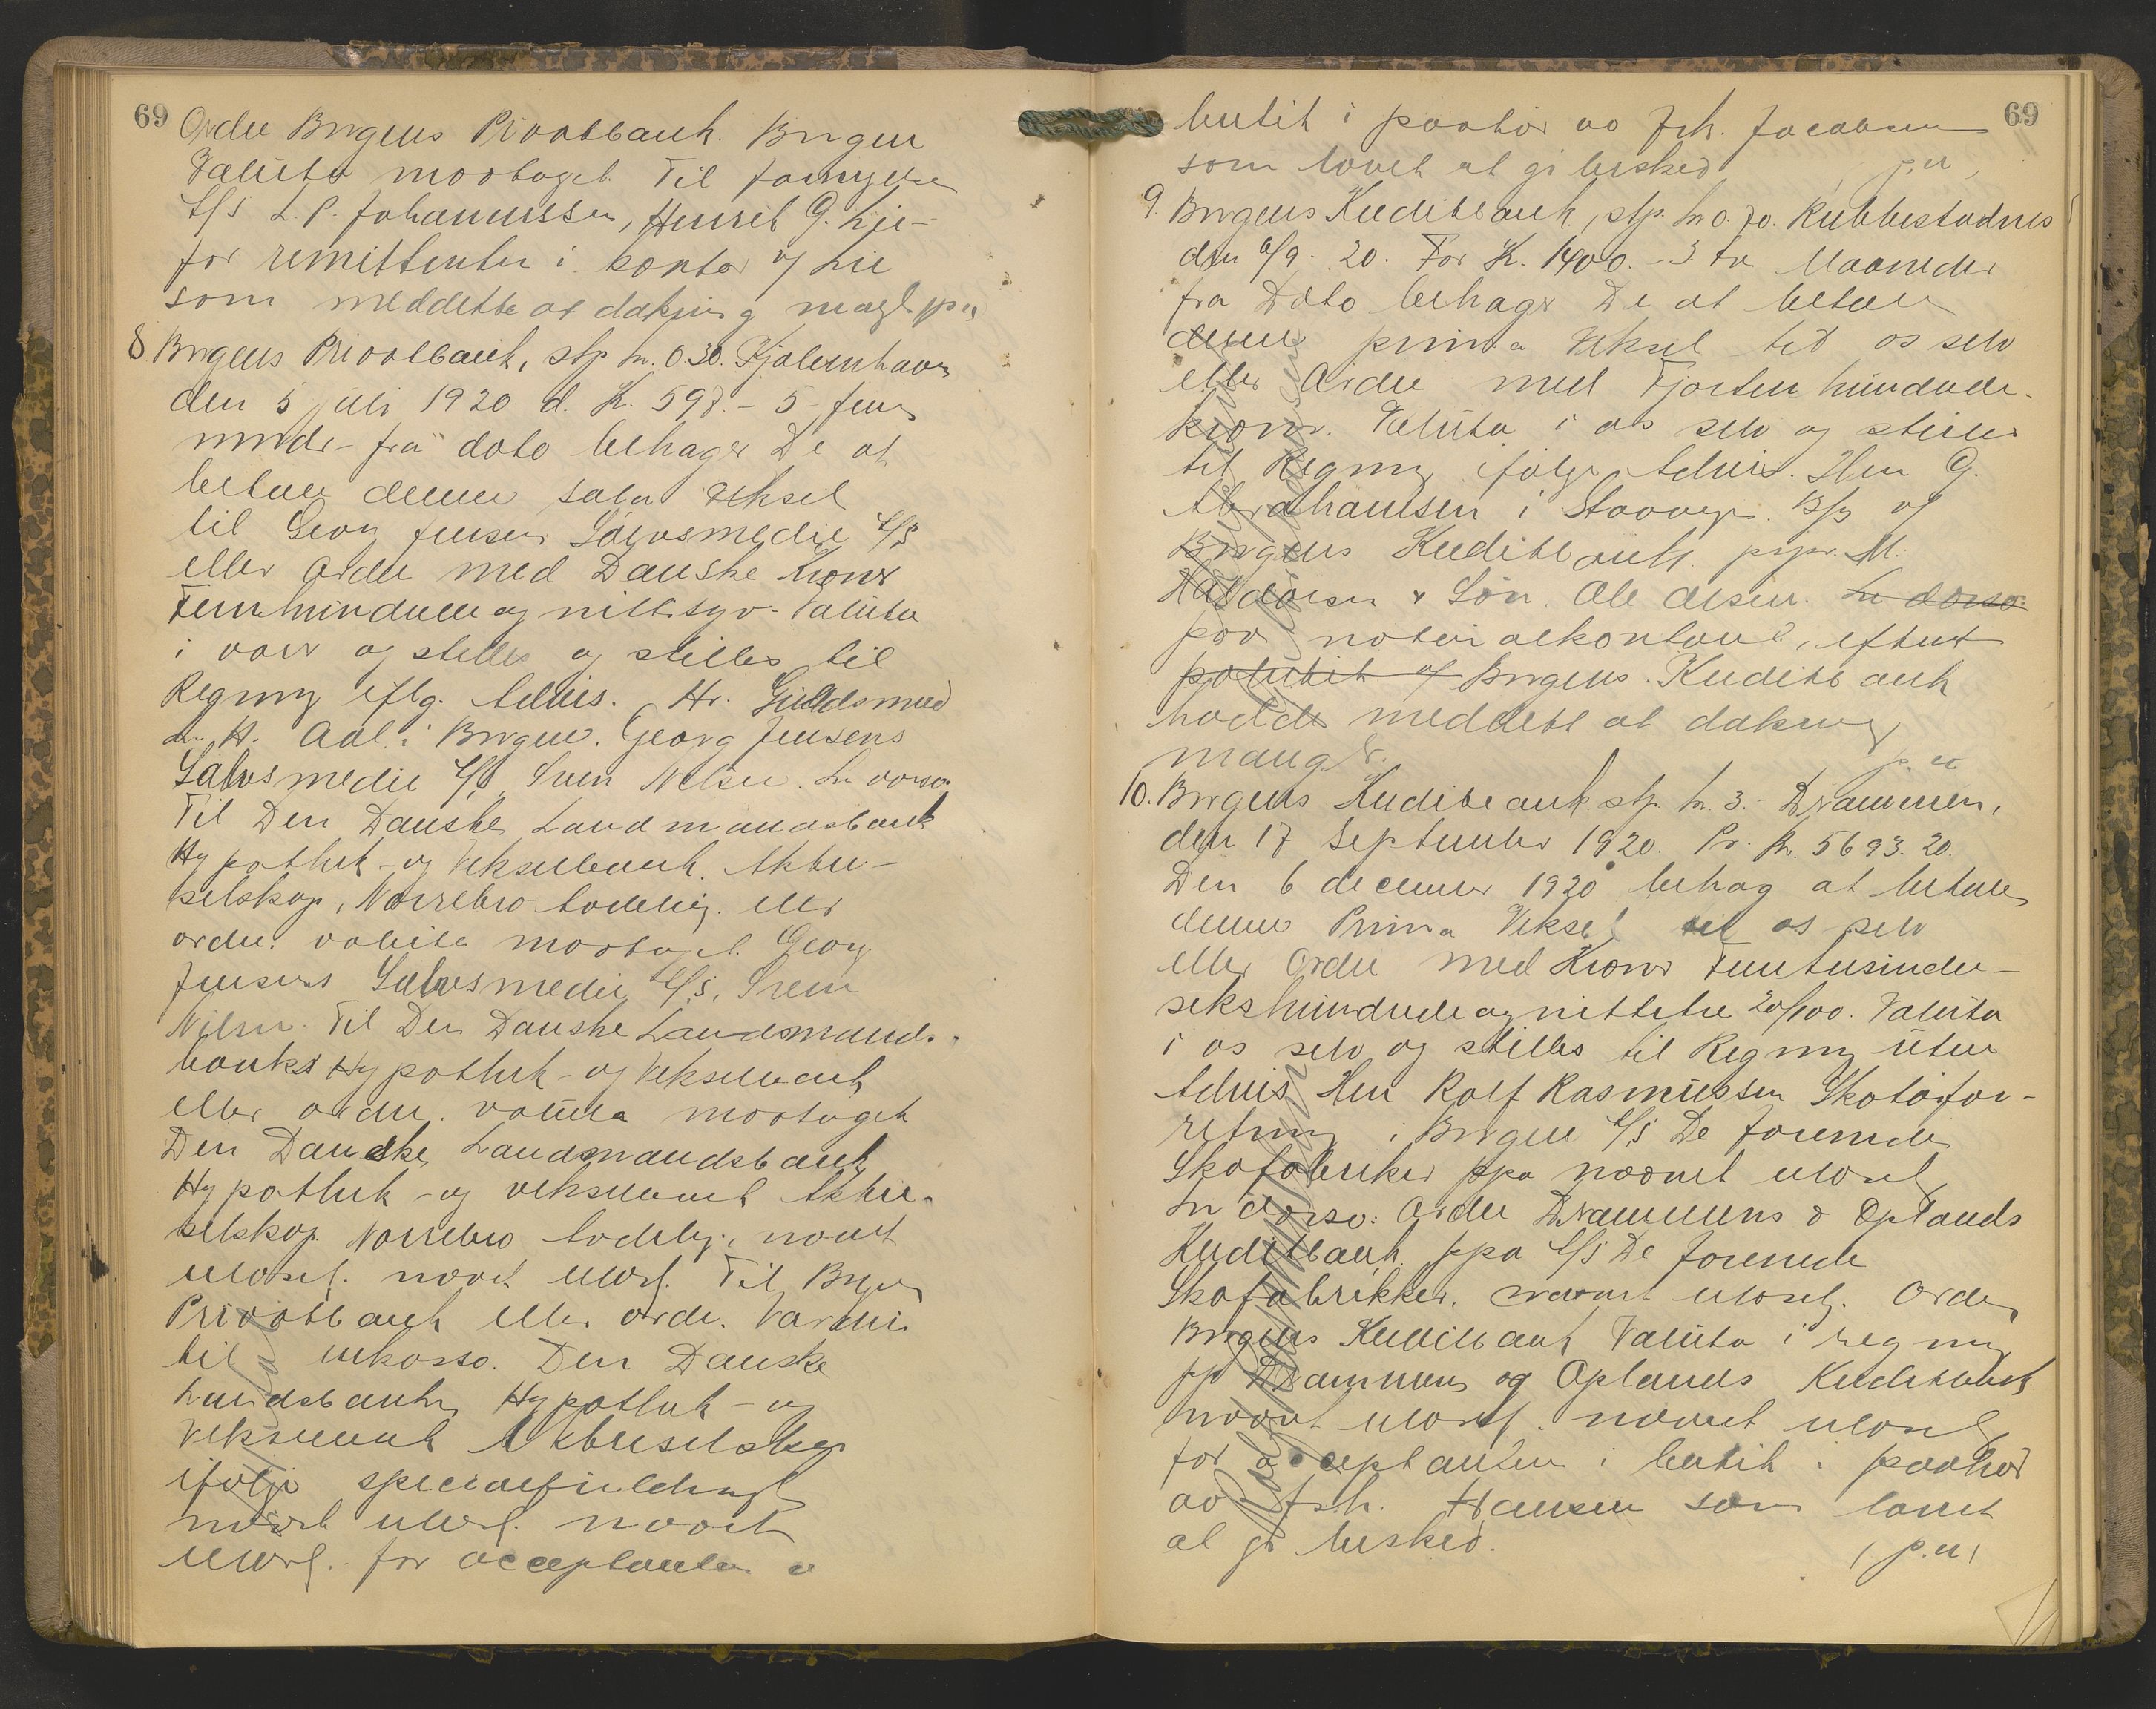 69
Ordre Bergens Privatbank. Bergen
Valuta mottaget. Til fornyelse
A/S L. P. Johannessen, Henrik G. Lie-
for remittenten i kontor og Lie
som meddelte at dækning mangl. p.u
8 Bergens Privatbank, stp. kr. 0.30. Kjøbenhavn
den 5 juli 1920. d. K. 597.- 5- fem
mndr- fra dato behager De at
betale denne sola veksel
til Georg Jensens Sølvsmedie A/S
eller ordre med Danske Kroner
Femhundrede og nitti syv- Valuta
i varer og stilles og stilles til
Regning iflg. Advis. Hr. Guldsmed
H. Aal. i Bergen. Georg Jensens
Sølvsmedie A/S Sven Nilsen. In dorso.
Til Den Danske Landmandsbank
Hypothek- og Vekselbank. Aktie-
selskap, Nørrebro avdeling. eller
ordre. valuta mottaget. Georg
Jensens Sølvsmedie A/S. Sven
Nilsen. Til Den Danske Landsmands-
banks Hypothek- og Vekselbank
eller ordre. valuta mottaget
Den Danske Landsmandsbank
Hypothek- og vekselbank Aktie-
selskap. Nørrebro avdeling, navnet
ulæsel. navnet ulæsl. Til Bergens
Privatbank eller ordre. Værdi
til inkasso. Den Danske
Landsbanken Hypothek- og
Vekselbank Aktieselskap
ifølge specialfuldmagt
navnet ulæsl. navnet
ulæsl. for acceptanten i
69
butik i påhør av frk. Jacobsen
som lovet at gi besked p.u,
9. Bergens Kreditbank, stp. kr. 0.70. Rubbestadnes
den 6/9. 20. For K. 1400.- 3 tre Maaneder
fra Dato behager De at betale
denne prima Veksel til os selv
eller Ordre med Fjorten hundrede
kroner. Valuta i os selv og stilles
til Regning ifølge Advis. Herr G.
Abrahamsen i Stavanger. B/B og
Bergens Kreditbank. pr.pr. M.
Haldorsen & Søn. Ole Olsen. In dorso.
paa notarialkontoret, efterat
palitet of Bergens. Kreditbank
hadde meddelt at dækning
mangler. p.u
10. Bergens Kreditbank stp. kr. 3.- Drammen,
den 17 September 1920. Pr. K. 5693.20.
Den 6 december 1920 behag at betale
denne Prima Veksel til os selv
eller Ordre med Kroner Femtusinde-
sekshundrede og nittitre 20/100. Valuta
i os selv og stilles til Regning uten
Advis. Herr Rolf Rasmussen Skotøifor-
retning i Bergen A/S De forenede
Skofabriker ppa navnet ulæsel
In dorso: Ordre Drammens & Oplands
Kreditbank. ppa A/S De forenede
Skofabrikker. navnet ulæselg. Ordre
Bergens Kreditbank Valuta i regning
pp Drammens og Oplands Kreditbank
navnet ulæsl. navnet ulæsl
for acceptanten i butik i paahør
av frk. Hansen som lovet
at gi besked. p.u,